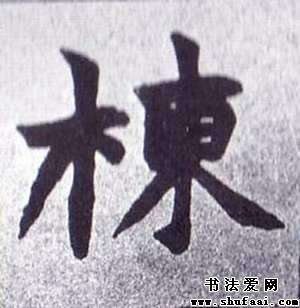 棟
书法爱网
www.shufaai.com